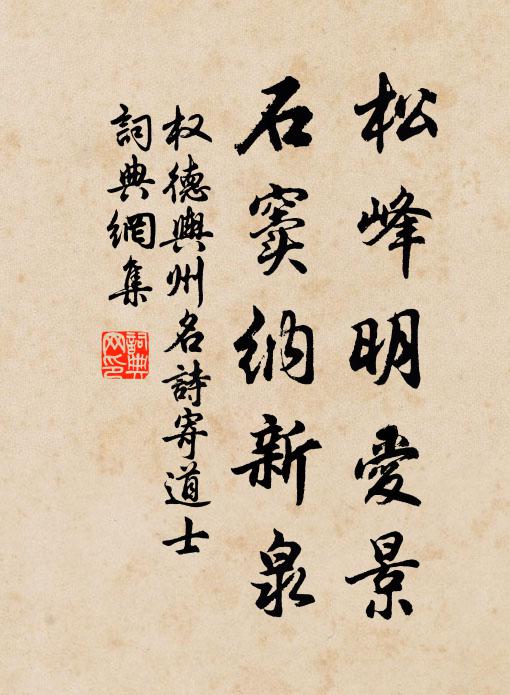 松峰明愛景
石窦納新泉
权德輿州名詩寄道士
詞典網集
詞典网印